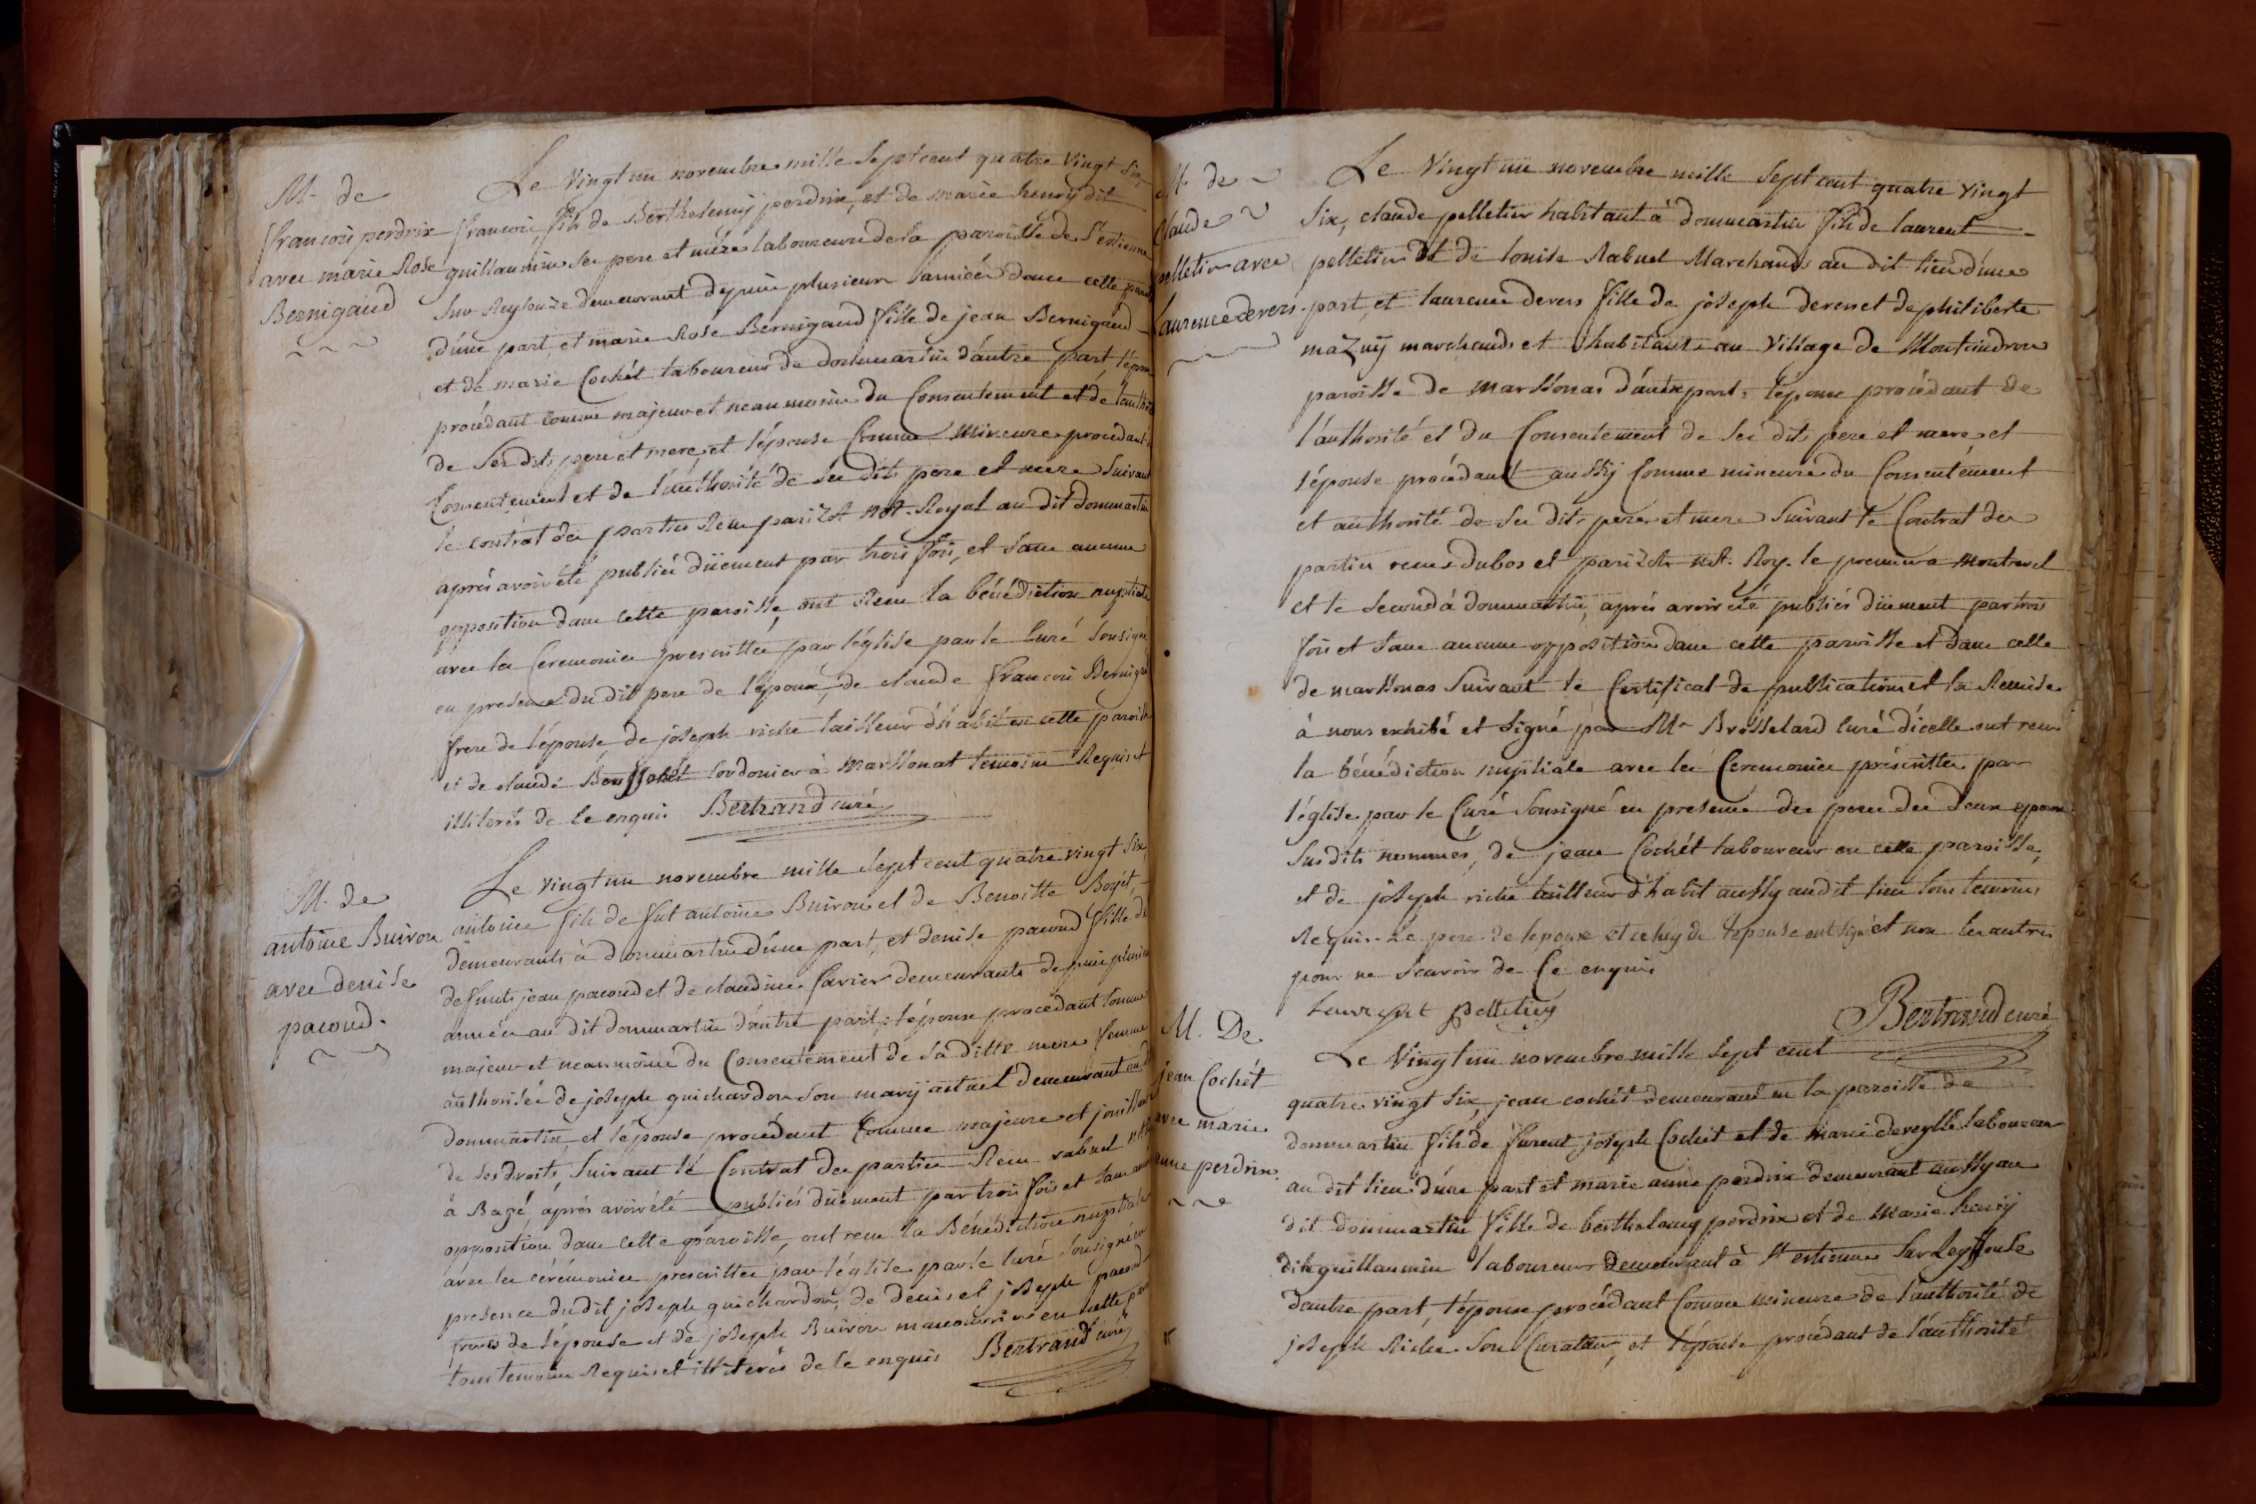 M. de
françois perdrix
avec marie Rose
Bernigaud
Le Vingt un novembre mille Sept cent quatre Vingt Six,
françois fils de Berthelemij perdrix, et de marie henrij dit
guillaumin Ses pere et mére laboureurs de la paroisse de St estienne
Sur Reyssouze demeurant depuis plusieurs années dans cette paroi
d'une part, et marie Rose Bernigaud fille de jean Bernigaud
et de marie Cochét laboureur de dommartin d'autre part l'époux
procédant comme majeur et neanmoins du Consentement et de l'autho
de Ses dits pere et mere, et l'épouse Comme Mineure procédant
Consentement et de l'authorité de Ses dits pere et mere Suivant
le contrat des parties Reçu parizot not. Royal au dit dommartin
aprés avoir été publiés düement par trois fois, et Sans aucune
opposition dans cette paroisse, ont Reçu la bénédiction nuptiale
avec les Ceremonies prescrittes par l'église par le Curé Sousigné
en presence du dit pere de l'époux, de claude françois Bernigaud
frere de l'épouse de joseph riche tailleur d'habit en cette paroisse
et de claude Bouchet Cordonier à Marsonat temoins Requis et
illiterés de ce enquis Bertrand curé
M. de
antoine Buiron
avec denise
pacoud.
Le vingt un novembre mille Sept cent quatre vingt Six,
antoine fils de fut antoine Buiron et de Benoitte Boyet,
demeurants à dommartin d'une part, et denise pacoud fille de
defunts jean pacoud et de claudine favier demeurante depuis plusieurs
années au dit dommartin d'autre part, l'époux procédant comme
majeur et neanmoins du Consentement de Sa ditte mere femme
authorisée de joseph guichardon Son marij actuel demeurant au dt
dommartin, et l'épouse procédant Comme majeure et jouissante
de Ses droits, Suivant le Contrat des parties Reçu rabuel not
à Bagé aprés avoir été publiés düement par trois fois et Sans aucune
opposition dans cette paroisse, ont reçu la Bénédiction nuptiale
avec les cérémonies prescrittes par l'église par le curé Sousigné en
presence du dit joseph guichardon, de denis et joseph pacoud
freres de l'épouse et de joseph Buiron manouvrier en cette par
tous temoins Requis et illiterés de ce enquis Bertrand curé
M. de
Claude
pelletier avec
Laurence devers.
Le Vingt un novembre mille Sept cent quatre vingt
Six, claude pelletier habitant à dommartin fils de laurent
pelletier et de louise Rabuel Marchands au dit lieu d'une
part, et laurence devers fille de joseph devers et de philiberte
mazuij marchands et habitants au Village de Montaudron
paroisse de marsonas d'autre part, l'époux procédant de
l'authorité et du Consentement de Ses dits pere et mere, et
l'épouse procédant aussij Comme mineure du Consentement
et authorité de Ses dits pere et mere Suivant le Contrat des
parties reçus dubos et parizot not. Roy. le premier a Montrevel
et le Second à dommartin, aprés avoir été publiés düement par trois
fois et Sans aucune opposition dans cette paroisse et dans celle
de marsonas Suivant le Certificat de publications et la Remise
à nous exhibé et Signé par Mr Brosselard Curé d'icelle ont reçu
la bénédiction nuptiale avec les Ceremonies préscrittes par
l'église par le Curé Sousigné en presence des peres des deux epoux
Susdits nommés, de jean Cochét laboureur en cette paroisse,
et de joseph riche tailleur d'habit aussy au dit lieu tous temoins
Requis. Le pere de l'epoux et celuy de l'epouse ont Signé et non les autres
pour ne Scavoir de Ce enquis
Laurent pelletier Bertrand curé
M. De
jean Cochét
avec marie
anne perdrix.
Le Vingt un novembre mille Sept cent
quatre vingt Six, jean cochét demeurant en la paroisse de
dommartin fils de furent joseph Cochét et de Marie dereylle laboureur
au dit lieu d'une part et marie anne perdrix demeurant aussy au
dit dommartin fille de berthelemy perdrix et de Marie henrij
dit guillaumin laboureurs demeurant à St estienne Sur Reyssouse
d'autre part, l'époux procédant Comme mineure de l'authorité de
joseph Riche Son Curateur, et l'épouse procédant de l'authorité